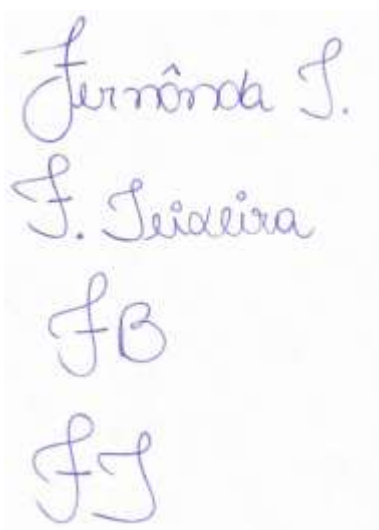 Fernânda T.
F. Teixeira
FB
FT